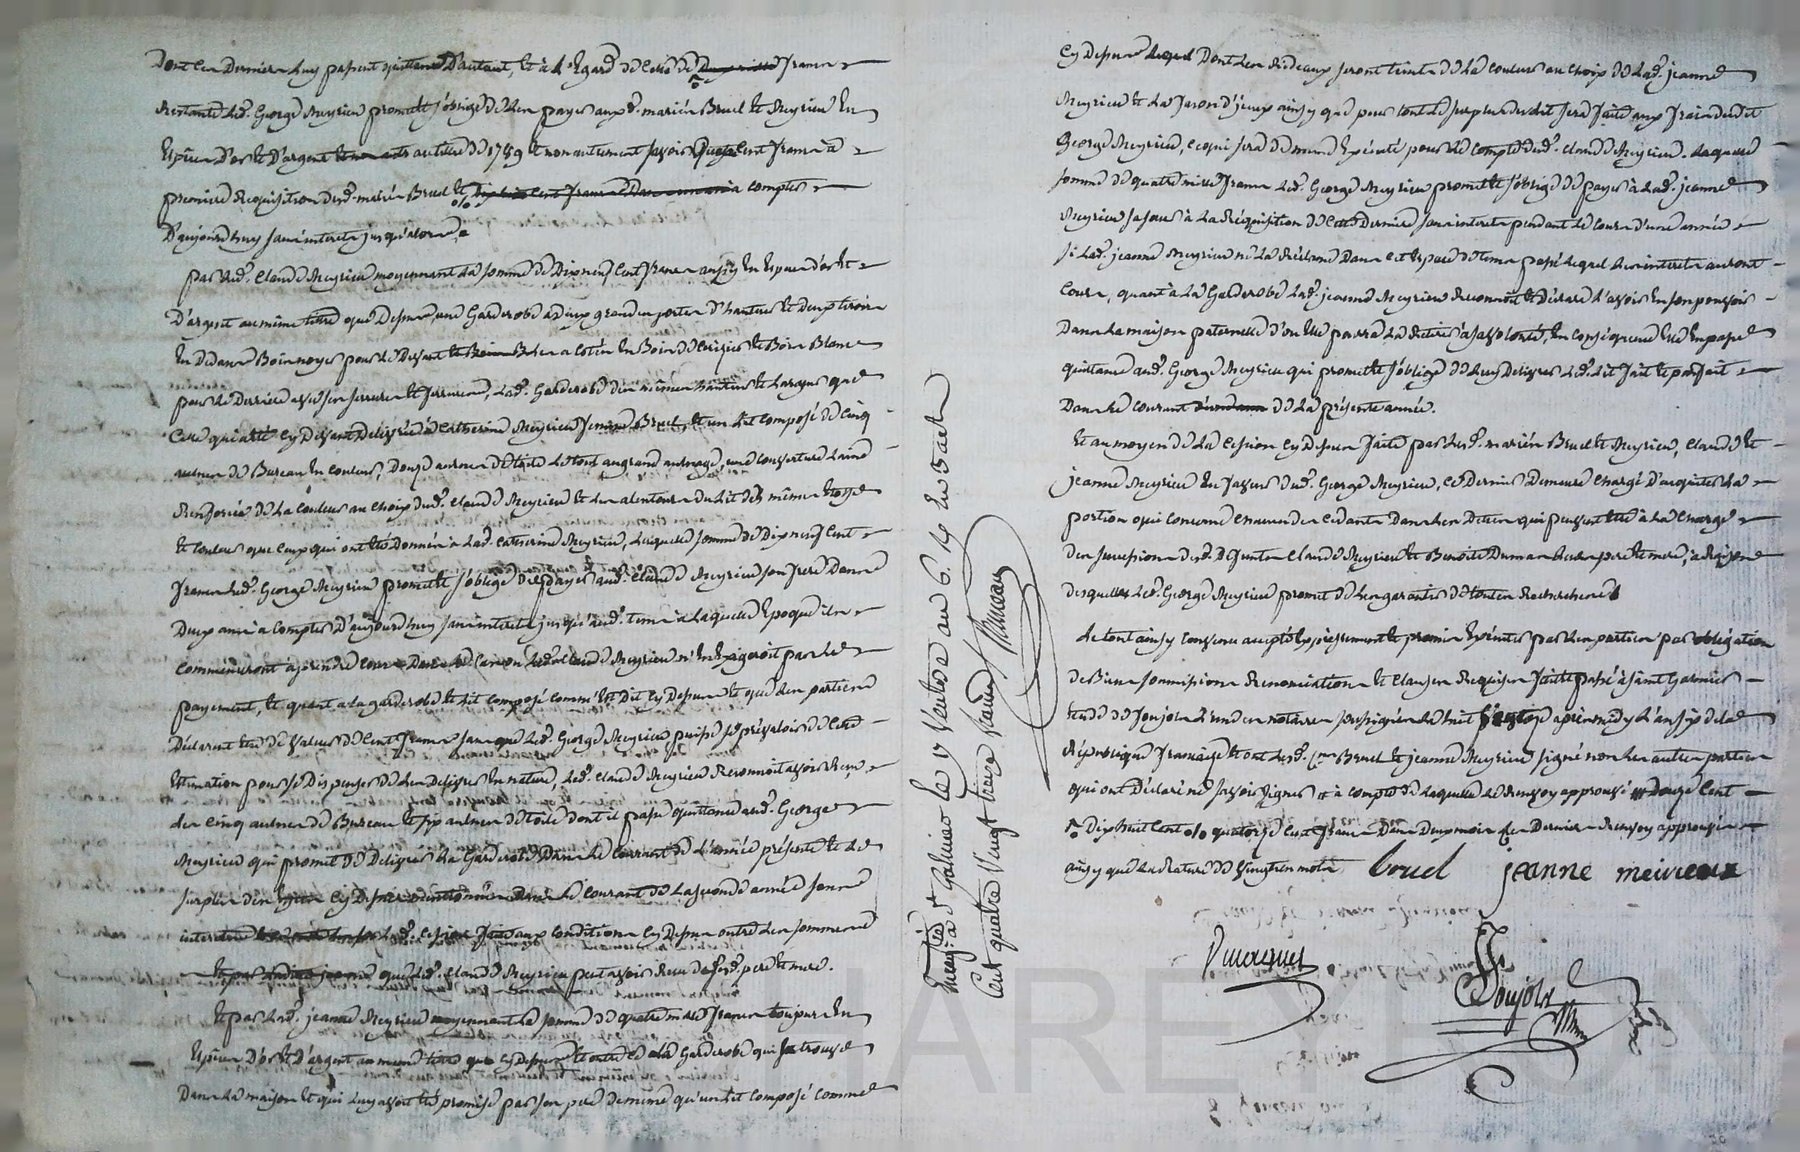 Dont ces Derniers luy passent quittance D'autant, et à l'Egard de celle de francs
Restante led. George Meyrieu promet et s'oblige de les payer auxd. mariés Bruel et Meyrieu En
Espèces D'or et D'argent au titre de 1789 et non autrement savoir cent francs à
première Requisition desd. mariés Bruel et à compter
D'aujourd'huy sans interets jusqu'alors
par led. Claude Meyrieu moyennant la somme de Dix neuf Cent francs aussy En Espèces d'or et
D'argent au même titre que Dessus, une Garderobe à Deux grandes portes D'hauteur et Deux tiroirs
En dedans Bois noyer pour le Devant et les cotés En Bois de Cerisier et Bois Blanc
pour le Derrière avec ses serrures et ferrures, lad. Garderobe des mêmes hauteur et largeur que
Celle qui a été cy Devant Delivrée à Catherine Meyrieu femme Bruel, et un Lit composé de Cinq
aulnes de Bureau En couleur, Douze aulnes de toile le tout au grand aulnage, une couverture Laine
Renforcée de la couleur au choix dud. Claude Meyrieu et les alentours du Lit de même Etoffe
et couleur que ceux qui ont été Donnés à lad. Catherine Meyrieu, laquelle somme de Dix neuf Cent
francs led. George Meyrieu promet et s'oblige De payer aud. Claude Meyrieu son frere Dans
Deux ans à compter D'aujourd'huy sans interets jusqu'aud. terme à laquelle Epoque ils
Commenceront à prendre cours Dans le Cas ou led. Claude Meyrieu n'En Exigeroit pas le
payement, et quant à la garderobe et Lit composé comme Est Dit cy Dessus et que les parties
Déclarent être de valeur de Cent francs sans que led. George Meyrieu puisse se prévaloir de lad.
Estimation pour se Dispenser de les Delivrer En nature, led. Claude Meyrieu Reconnoit avoir Reçu
des cinq aulnes de Bureau et six aulnes de toile dont il passe quittance aud. George
Meyrieu qui promet de Deliver la Garderobe Dans le Courant de l'année présente et le
surplus des cy Dessus mentionnés Dans le Courant de la seconde année sans
interets aux conditions cy Dessus outre les sommes
que led. Claude Meyrieu peut avoir Reçu de sesd. pere et mere.
Et par lad. jeanne Meyrieu moyennant la somme de quatre mille francs toujours En
Espèces D'or et D'argent au meme titre que cy Dessus et outre ce la Garderobe qui se trouve
Dans la maison et qui luy avoit été promise par son pere de meme qu'un Lit composé comme
Enreg. à St Galmier le 17 Ventose an 6. f. 19
Cent quatre Vingt treize francs
Cy Dessus Dont les Rideaux seront teints de la couleur au choix de lad. jeanne
Meyrieu et la façon d'iceux ainsy que pour tout le surplus dud. Lit sera faite aux frais dudit
George Meyrieu, ce qui sera de meme Exécuté pour le compte dud. Claude Meyrieu. Laquelle
somme de quatre mille francs led. George Meyrieu promet et s'oblige de payer à lad. jeanne
Meyrieu sa sœur à la Réquisition de cette Dernière sans interets pendant le Cours d'une année
si lad. jeanne Meyrieu ne la Réclame Dans cet Espace de tems passé lequel les interets auront
Cours, quant à la Garderobe lad. jeanne Meyrieu Reconnoit et Déclare l'avoir En son pouvoir
Dans la maison paternelle d'ou Elle pourra la Retirer à sa volonté, En conséquence Elle En passe
quittance aud. George Meyrieu qui promet et s'oblige de luy Delivrer led. Lit fait et parfait
Dans le courant de la présente année.
Et au moyen de la Cession cy Dessus faite par lesd. mariés Bruel et Meyrieu, Claude et
jeanne Meyrieu En faveur dud. George Meyrieu, ce Dernier Demeure Chargé D'acquitter la
portion qui concerne chacun des cedants Dans les Dettes qui peuvent etre à la Charge
des successions desd. Defunts Claude Meyrieu et Benoite Dumas leurs pere et mere, à Raison
desquelles led. George Meyrieu promet de les garantir de toutes Recherches
Le tout ainsy convenu accepté Expressement et promis Exécuter par les parties par obligation
de Biens soumissions Renonciations et Clauses Requises fait et passé à saint Galmier
Etude de soujols L'un des notaires soussignés le huit Ventose après midy L'an six de la
République française et ont lesd. cens Bruel et jeanne Meyrieu signé non les autres parties
qui ont Déclaré ne savoir signer à compte de laquelle le Renvoy approuvé douze Cent
Dix huit Cent quatorze Cent francs Dans Deux mois Dernier Renvoy approuvé
ainsy que la Rature de Vingt mots
bruel jeanne meireeux
Soujols